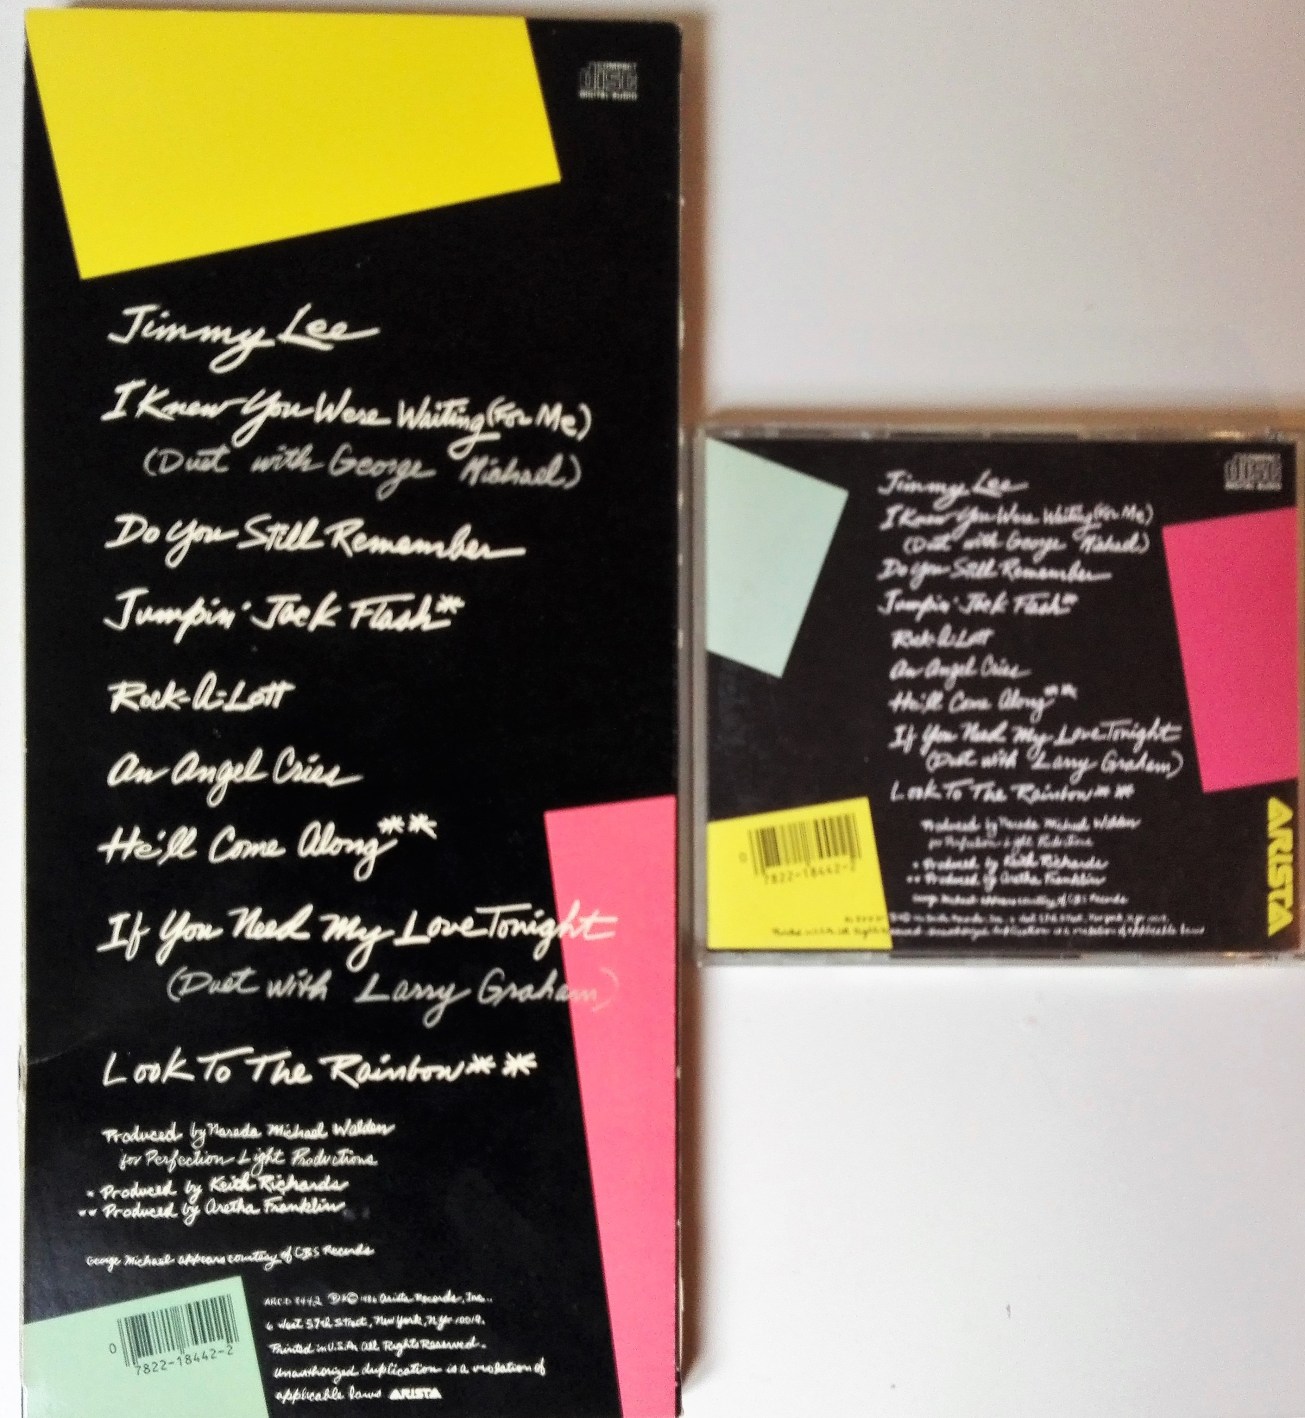 COMPACT
disc
DIGITAL AUDIO
Jimmy Lee
I Knew You Were Waiting (For Me)
(Duet with George Michael)
Do You Still Remember
Jumpin' Jack Flash*
Rock-A-Lott
An Angel Cries
He'll Come Along**
If You Need My Love Tonight
(Duet with Larry Graham)
Look To The Rainbow**
Produced by Narada Michael Walden
for Perfection Light Productions
* Produced by Keith Richards
** Produced by Aretha Franklin
George Michael appears courtesy of CBS Records
ARCD 8442 ℗© 1986 Arista Records, Inc.,
6 West 57th Street, New York, N.Y. 10019.
Printed in U.S.A. All Rights Reserved.
Unauthorized duplication is a violation of
applicable laws ARISTA
0 7822-18442-2
COMPACT
disc
DIGITAL AUDIO
Jimmy Lee
I Knew You Were Waiting (For Me)
(Duet with George Michael)
Do You Still Remember
Jumpin' Jack Flash*
Rock-A-Lott
An Angel Cries
He'll Come Along**
If You Need My Love Tonight
(Duet with Larry Graham)
Look To The Rainbow**
Produced by Narada Michael Walden
for Perfection Light Productions
* Produced by Keith Richards
** Produced by Aretha Franklin
George Michael appears courtesy of CBS Records
Arista Records, Inc., 6 West 57th Street, New York, N.Y. 10019.
Unauthorized duplication is a violation of applicable laws
0 7822-18442-2
ARISTA